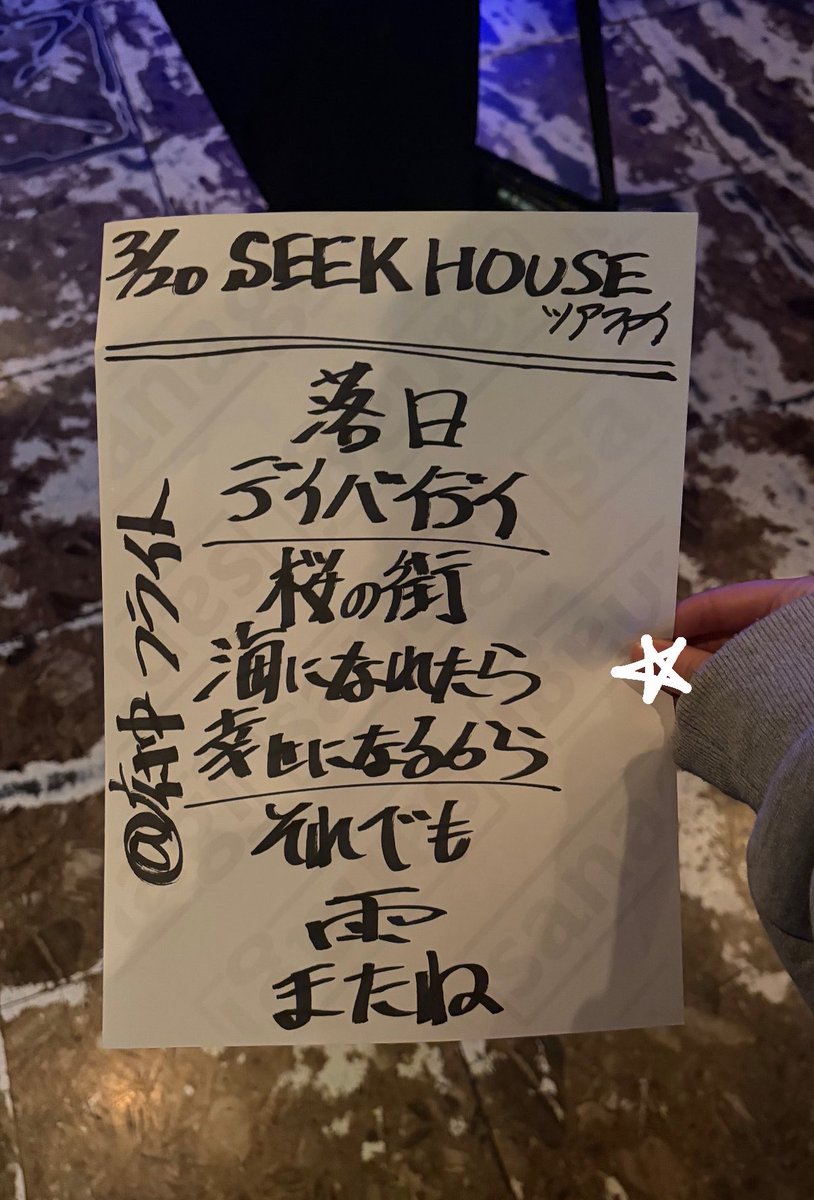 3/20 SEEK HOUSE
ツアファイ
落日
デイバイデイ
桜の街
海になれたら
幸せになるから
それでも
雨
またね
@府中フライト